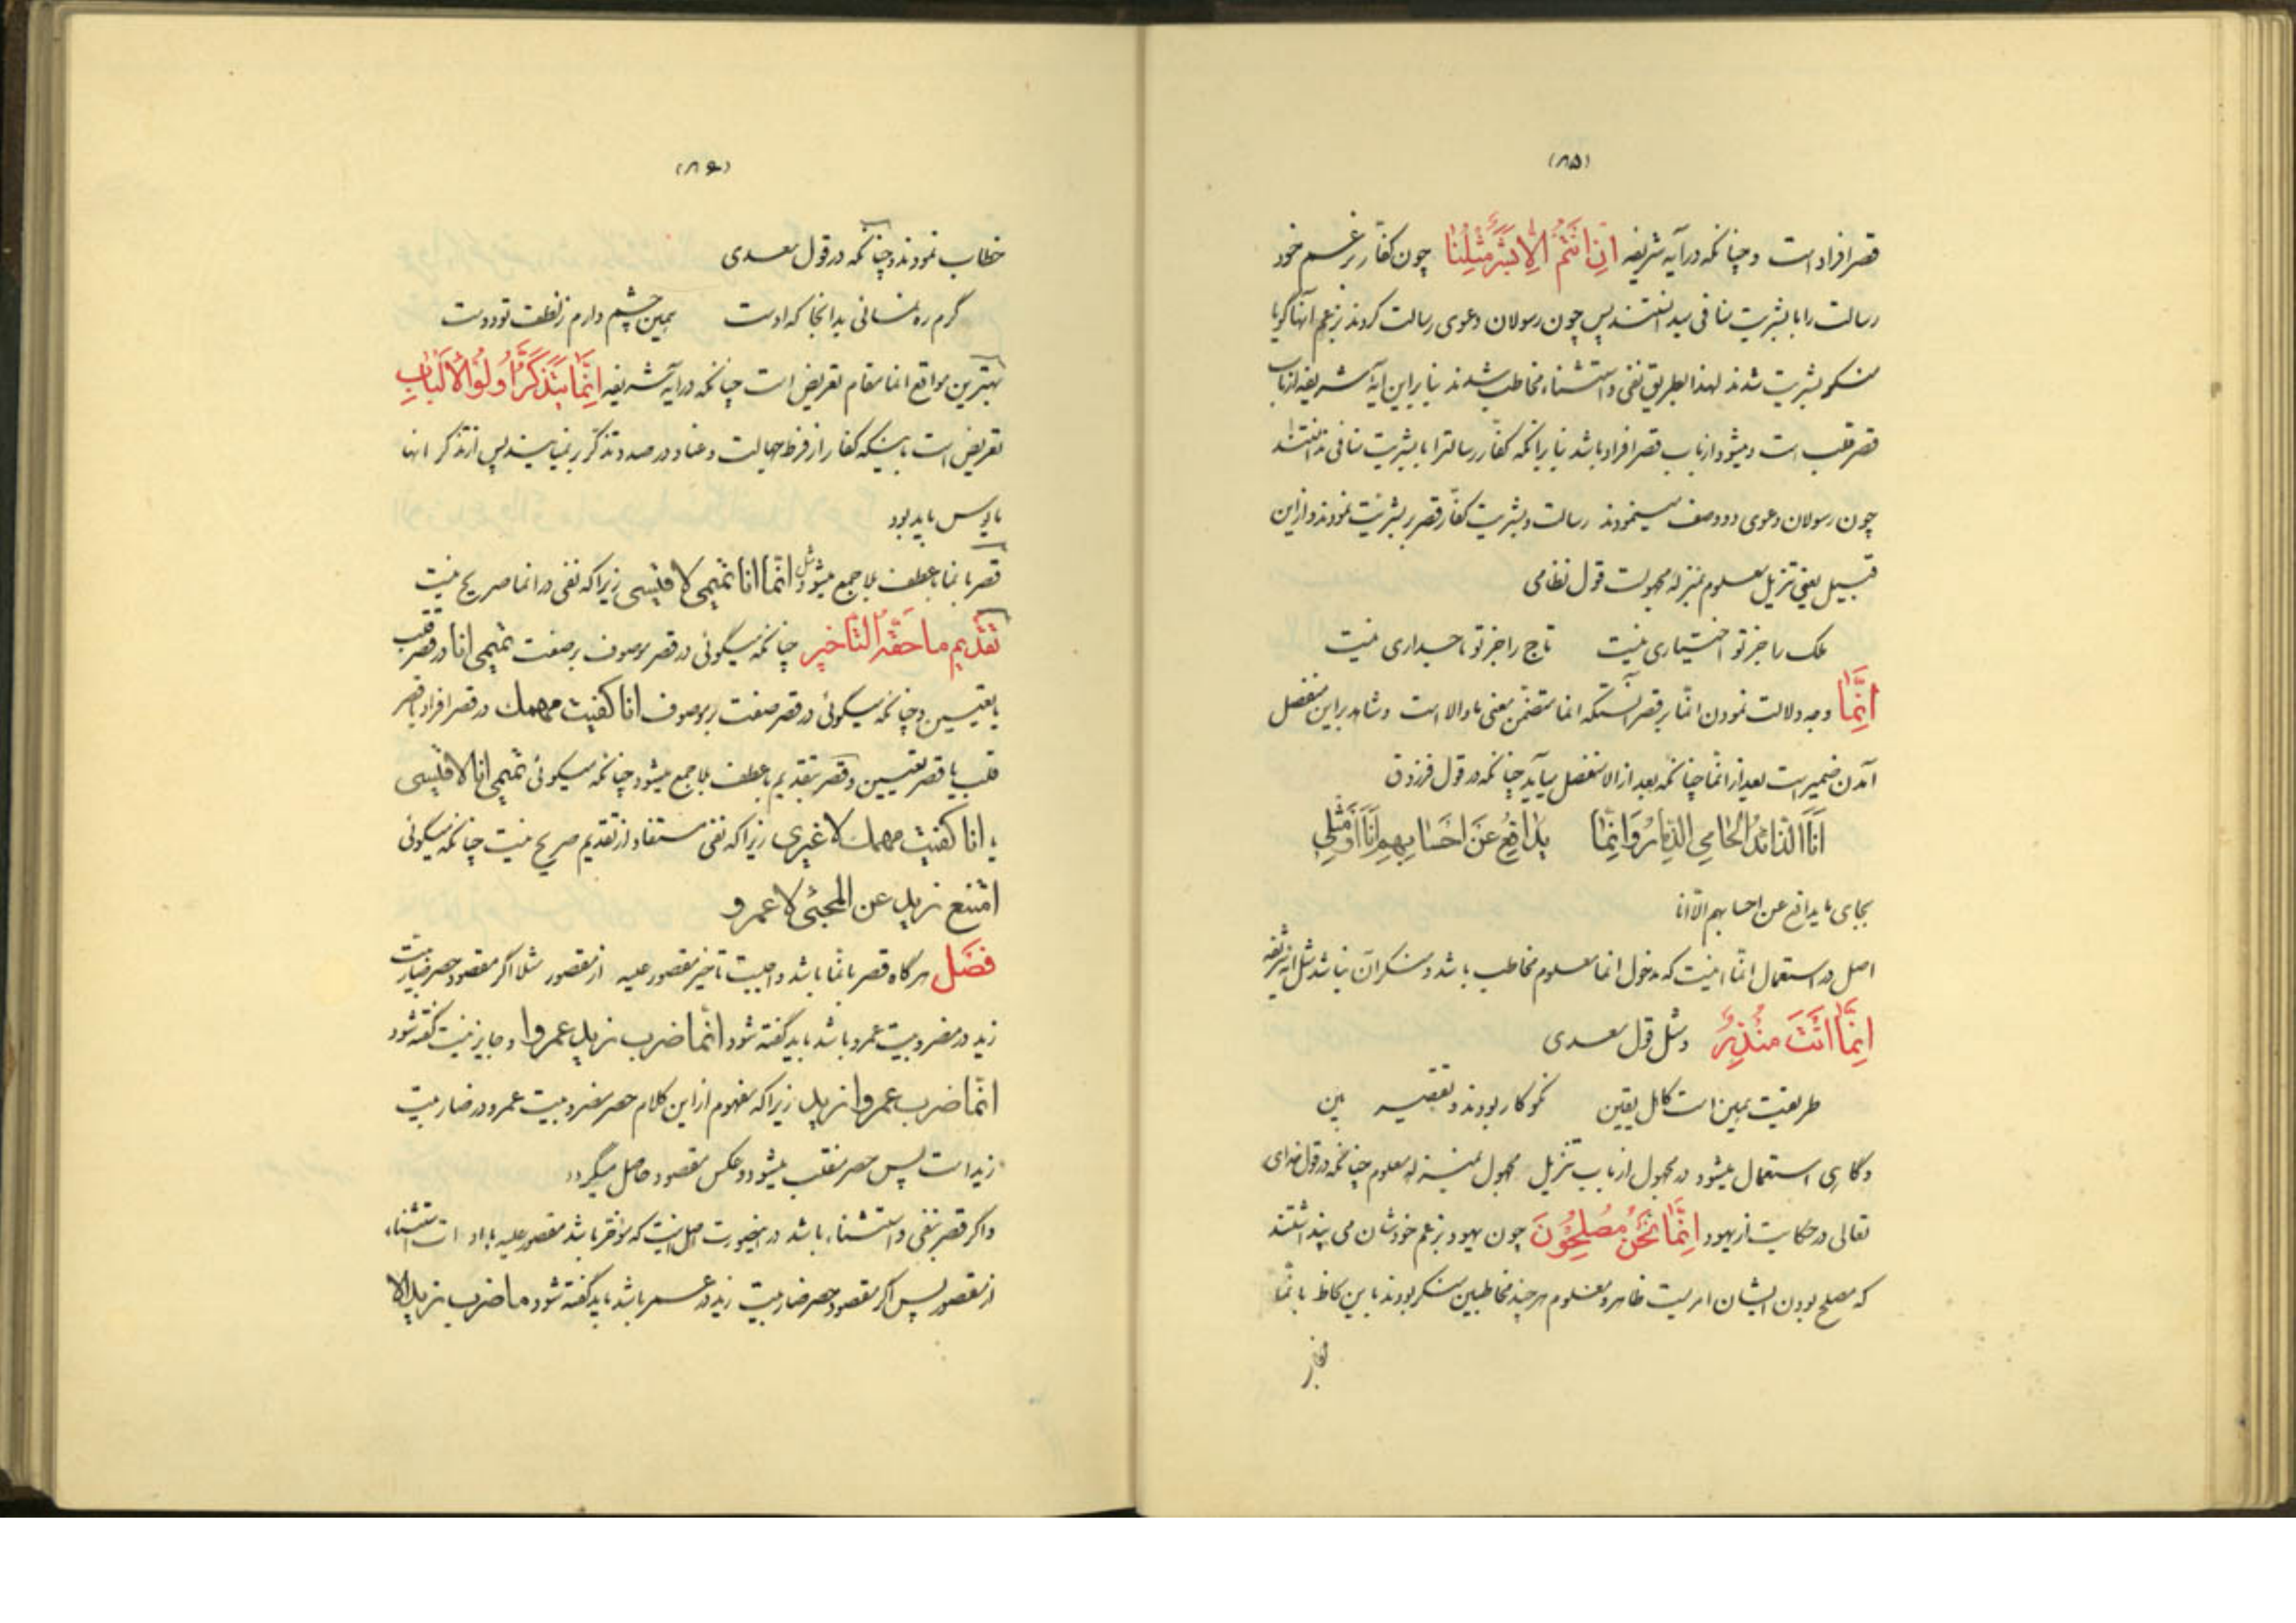 (۸۵)
قصر افراد است و چنانکه در آیه شریفه اِنْ اَنْتُمْ اِلّا بَشَرٌ مِثْلُنا چون کفّار بزعم خود
رسالت را با بشریت منافی میدانستند پس چون رسولان دعوی رسالت کردند بزعم آنها گویا
منکر بشریت شدند لهذا بطریق نفی و استثناء مخاطب شدند بنا براین آیه شریفه از باب
قصر قلب است و میشود از باب قصر افراد باشد بنا بر آنکه کفّار رسالترا با بشریت منافی ندانستند
چون رسولان دعوی دو وصف مینمودند رسالت و بشریت کفّار قصر بر بشریت نمودند و از این
قبیل یعنی تنزیل معلوم بمنزله مجهولست قول نظامی
ملک را جز تو اختیاری نیست تاج را جز تو تاجداری نیست
اِنَّما وجه دلالت نمودن انّما بر قصر آنستکه انما متضمّن معنی ما و الا است و شاهد براین منفصل
آمدن ضمیر است بعد از انّما چنانکه بعد از الا منفصل میآید چنانکه در قول فرزدق
اَنَا الذّائِدُ الْحامِی الذِّمارَ وَ اِنَّما یُدافِعُ عَنْ اَحْسابِهِمْ اَنَا اَوْ مِثْلِی
بجای ما یدافع عن احسابهم الّا انا
اصل در استعمال انّما اینست که مدخول انما معلوم مخاطب باشد و منکر آن نباشد مثل آیه شریفه
اِنَّما اَنْتَ مُنْذِرٌ و مثل قول سعدی
طریقت همین است کاهل یقین نکوکار بودند و تقصیر بین
و گاهی استعمال میشود در مجهول از باب تنزیل مجهول بمنزله معلوم چنانکه در قول خدای
تعالی در حکایت از یهود اِنَّما نَحْنُ مُصْلِحُونَ چون یهود بزعم خودشان می پنداشتند
که مصلح بودن ایشان امریست ظاهر و معلوم هر چند مخاطبین منکر بودند باین لحاظ با انّما
(۸۶)
خطاب نمودند و چنانکه در قول سعدی
گرم ره نمائی بدانجا که اوست همین چشم دارم ز لطفت تو دوست
بهترین مواقع انما مقام تعریض است چنانکه در آیه شریفه اِنَّما یَتَذَکَّرُ اُولُو الْاَلْبابِ
تعریض است باینکه کفّار از فرط جهالت و عناد در صدد تذکّر بر نمیآیند پس از تذکر انها
مایوس باید بود
قصر بانما با عطف بلا جمع میشود مثل انّما انا تمیمی لا قیسی زیرا که نفی در انما صریح نیست
تَقْدیم ما حَقّهُ التَّاخیر چنانکه میگوئی در قصر موصوف بر صفت تمیمی انا در قصر قلب
یا تعیین و چنانکه میگوئی در قصر صفت بر موصوف انا کفیت مهمك در قصر افراد یا قصر
قلب یا قصر تعیین و قصر بتقدیم با عطف بلا جمع میشود چنانکه میگوئی تمیمی انا لا قیسی
انا کفیت مهمك لا غیری زیرا که نفی مستفاد از تقدیم صریح نیست چنانکه میگوئی
امتنع زید عن المجیئ لا عمرو
فصَل هر گاه قصر بانّما باشد واجبست تاخیر مقصور علیه از مقصور مثلا اگر مقصود حصر ضاربیت
زید در مضروبیت عمرو باشد باید گفته شود انّما ضرب زید عمروا و جایز نیست گفته شود
انّما ضرب عمروا زید زیرا که مفهوم از این کلام حصر مضروبیت عمرو در ضاربیت
زید است پس حصر منقلب میشود و عکس مقصود حاصل میگردد
و اگر قصر بنفی و استثناء باشد در اینصورت اصل اینست که مؤخّر باشد مقصور علیه با ادات استثناء
از مقصور پس اگر مقصود حصر ضاربیت زید در عمر باشد باید گفته شود ما ضرب زید الا